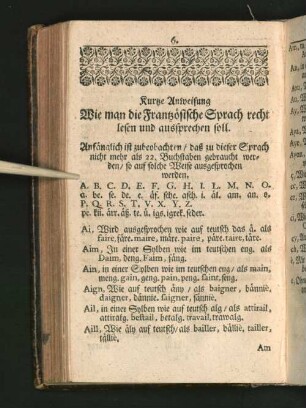 6.
Kurtze Anweisung
Wie man die Frantzösische Sprach recht
lesen und aussprechen soll.
Anfänglich ist zubeobachten / daß zu dieser Sprach
nicht mehr als 22. Buchstaben gebraucht wer-
den / so auf solche Weise ausgesprochen
werden.
A. B. C. D. E. F. G. H. I. L. M. N. O.
a. be. se. de. e. äf. sche. asch. i. äl. am. an. o.
P. Q. R. S. T. V. X. Y. Z.
pe. kü. ärr. äß. te. ü. igs. igref. säder.
Ai, Wird ausgesprochen wie auf teutsch das ä. als
faire, färe. maire, märe. paire, päre. taire, täre.
Aim, In einer Sylben wie im teutschen eng. als
Daim, deng. Faim, fäng.
Ain, in einer Sylben wie im teutschen eng / als main,
meng. gain, geng. pain, peng. saint, seng.
Aign. Wie auf teutsch äny / als baigner, bännié,
daigner, dännie. saigner, sännié,
Ail, in einer Sylben wie auf teutsch alg / als attirail,
attiralg. bestail, betalg. travail, trawalg.
Aill, Wie äly auf teutsch / als bailler, bällié, tailler,
tällié,
Am